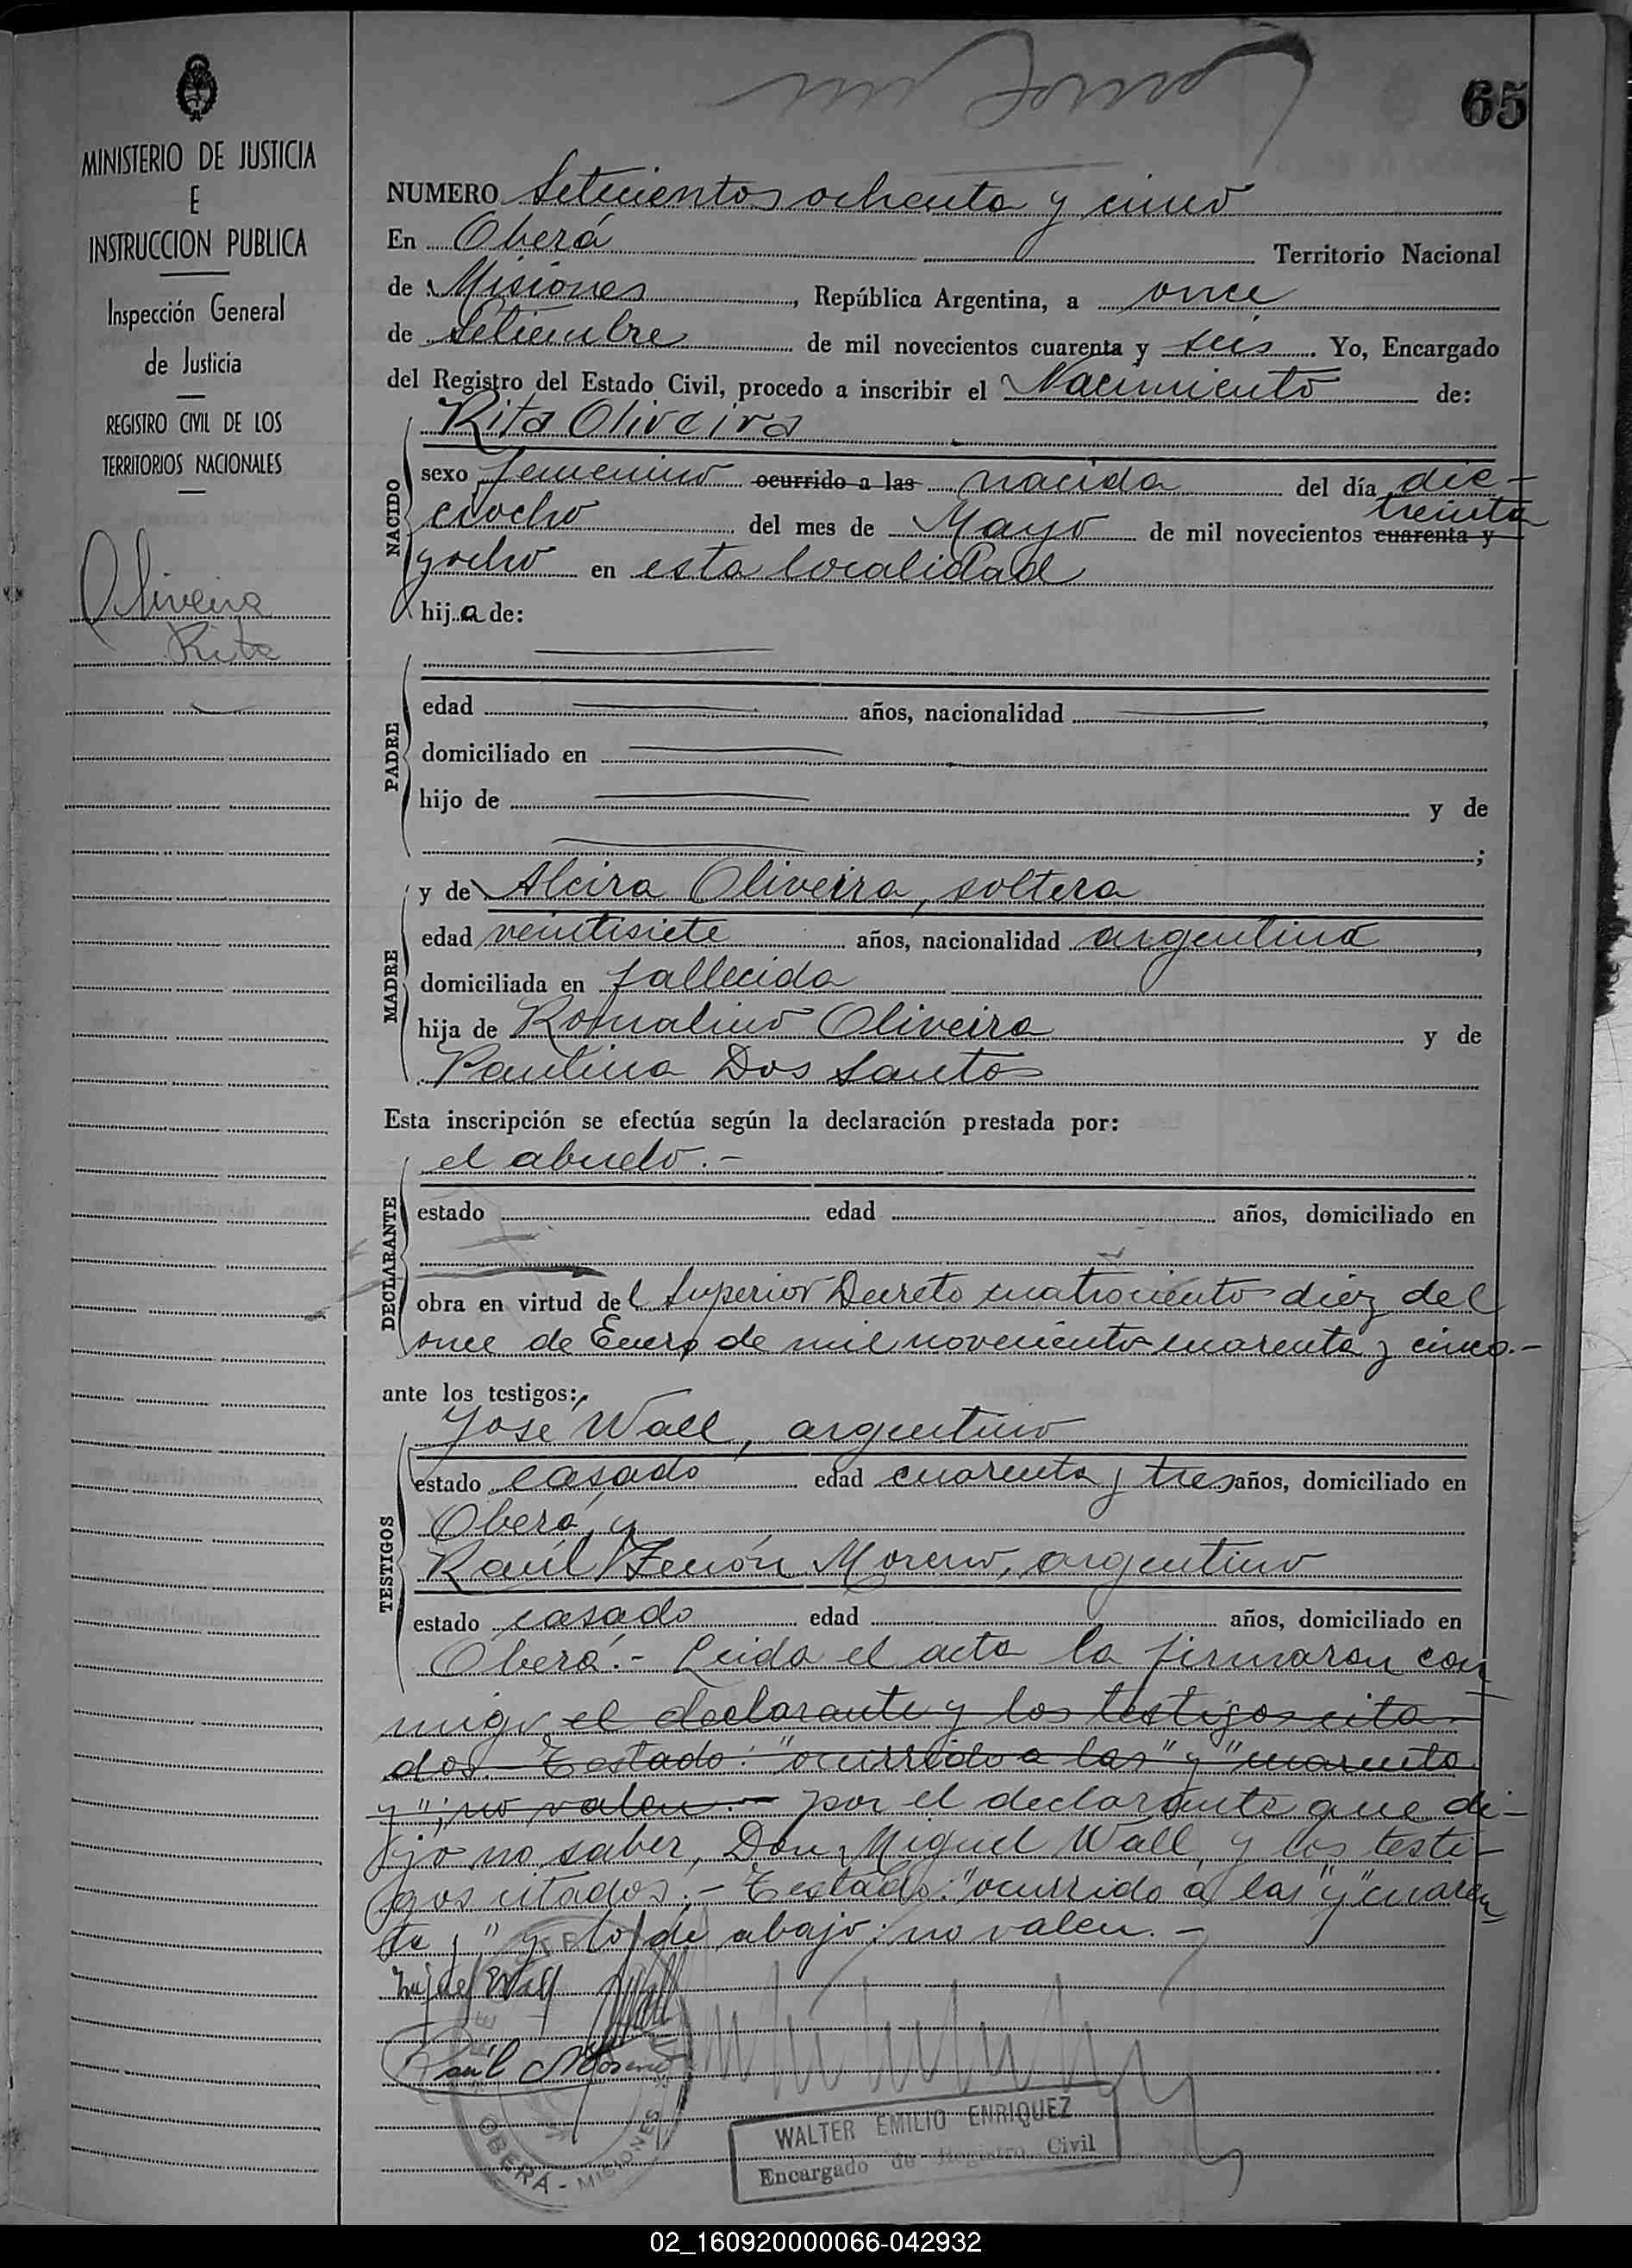 65
MINISTERIO DE JUSTICIA
E
INSTRUCCION PUBLICA
Inspección General
de Justicia
REGISTRO CIVIL DE LOS
TERRITORIOS NACIONALES
Oliveira
Rita
NUMERO Setecientos ochenta y cinco
En Oberá Territorio Nacional
de Misiones, República Argentina, a once
de Setiembre de mil novecientos cuarenta y seis. Yo, Encargado
del Registro del Estado Civil, procedo a inscribir el Nacimiento de:
Rita Oliveira
NACIDO
sexo femenino ocurrido a las nacida del día die-
treinta
ciocho del mes de Mayo de mil novecientos cuarenta y
y ocho en esta localidad
hij a de:
PADRE
edad años, nacionalidad ,
domiciliado en
hijo de y de
;
MADRE
y de Alcira Oliveira, soltera
edad veintisiete años, nacionalidad argentina,
domiciliada en fallecida
hija de Romalino Oliveira y de
Paulina Dos Santos
Esta inscripción se efectúa según la declaración prestada por:
el abuelo.-
DECLARANTE
estado edad años, domiciliado en
obra en virtud del Superior Decreto cuatrociento diez del
once de Enero de mil novecientos cuarenta y cinco.-
ante los testigos:
José Wall, argentino
TESTIGOS
estado casado edad cuarenta y tres años, domiciliado en
Oberá, y
Raúl Zenón Moreno, argentino
estado casado edad años, domiciliado en
Oberá.- Leida el acta la firmaron con
migo el declarante y los testigos cita-
dos.- Testado: "ocurrido a las" y "cuarenta
y"; no valen.- por el declarante que di-
jo no saber, Don Miguel Wall, y los testi-
gos citados.- Testado: "ocurrido a las" y "cuaren
ta y" y lo de abajo: no valen.-
Miguel Wall
Raúl Moreno
OBERÁ - MISIONES
WALTER EMILIO ENRIQUEZ
Encargado de Registro Civil
02_160920000066-042932